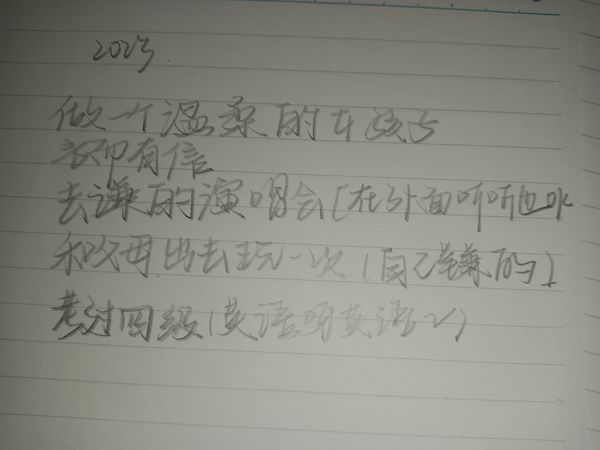 2023.
做一个温柔的女孩子
言而有信
去谦的演唱会(在外面听听也以
和父母出去玩一次(自己赚的)
考过四级(英语呀英语~)